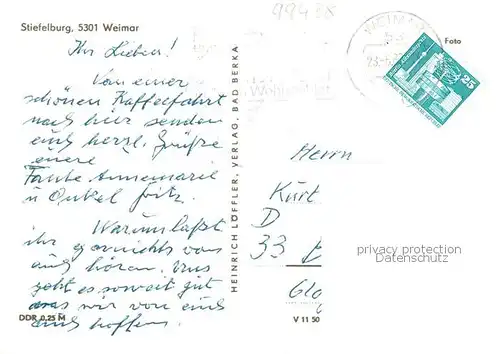 98488
Stiefelburg, 5301 Weimar
WEIMAR
Foto
25
Ihr Lieben!
Von einer
schönen Kaffeefahrt
nach hier senden
euch herzl. Grüße
euere
Tante Annemarie
u Onkel Fritz.
Warum laßt
ihr garnichts von
euch hören. Uns
geht es soweit gut
was wir von euch
auch hoffen.
HEINRICH LÖFFLER, VERLAG, BAD BERKA
Herrn
Kurt
D
33
privacy protection
Datenschutz
DDR 0,25 M
V 11 50